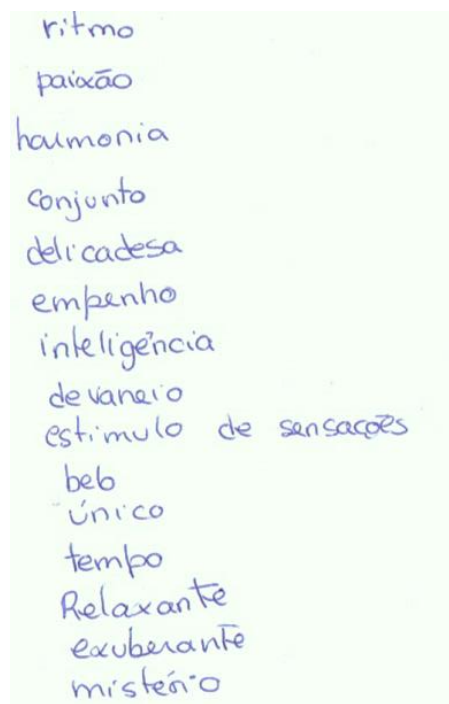 ritmo
paixão
harmonia
conjunto
delicadesa
empenho
inteligência
devaneio
estimulo de sensações
belo
único
tempo
Relaxante
exuberante
mistério